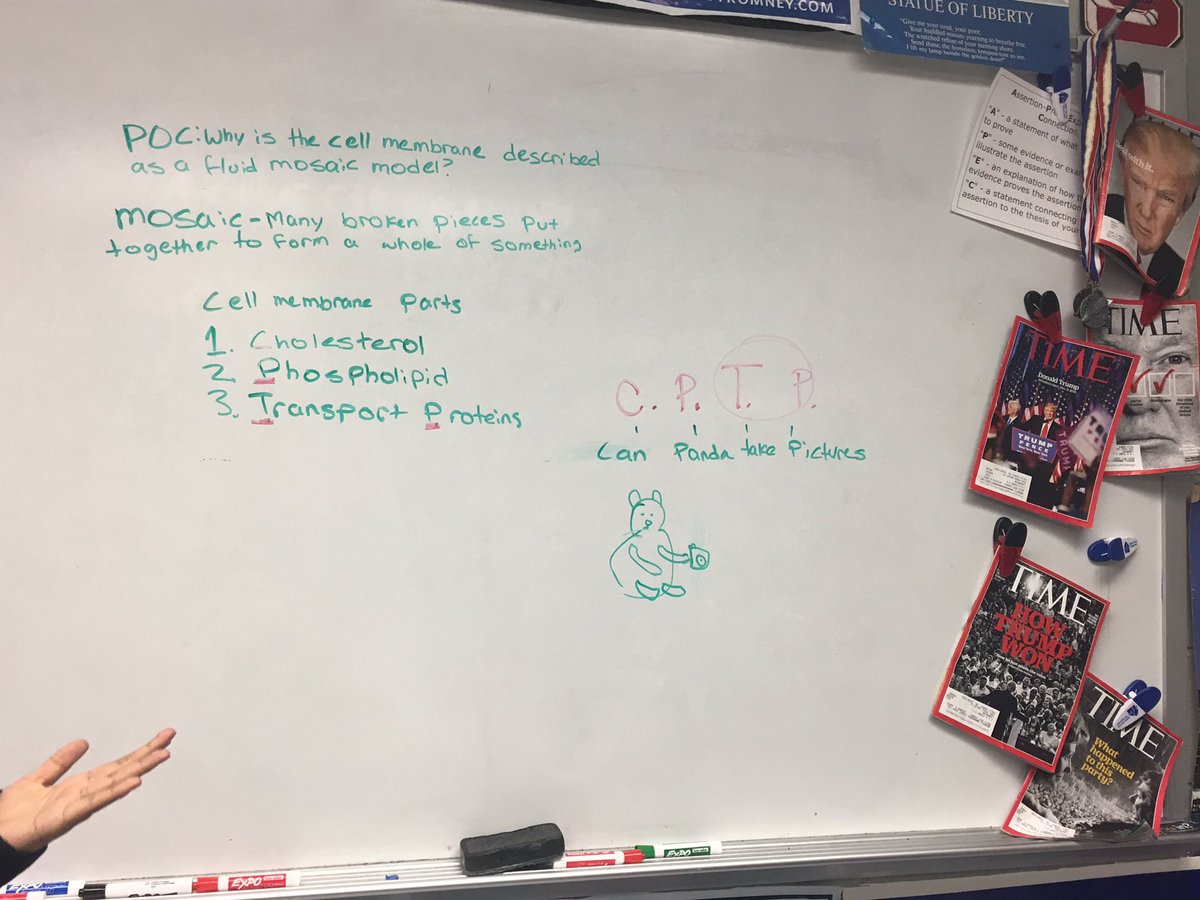 TROMNEY.COM
STATUE OF LIBERTY
"Give me your tired, your poor,
Your huddled masses yearning to breathe free,
The wretched refuse of your teeming shore.
Send these, the homeless, tempest-tost to me,
I lift my lamp beside the golden door!"
POC: Why is the cell membrane described
as a fluid mosaic model?
mosaic - Many broken pieces put
together to form a whole of something
Cell membrane Parts
1. Cholesterol
2. Phospholipid
3. Transport Proteins
C. P. T. P.
Can Panda take Pictures
Assertion-
Connection
"A" - a statement of what
to prove
"P" - some evidence or
illustrate the assertion
"E" - an explanation of how
evidence proves the assertion
"C" - a statement connecting
assertion to the thesis of your
with it.
TIME
TIME
Donald Trump
TRUMP
PENCE
TRUMP
TIME
HOW
TRUMP
WON
TIME
What
happened
to this
party?
EXPO
EXPO
EXPO